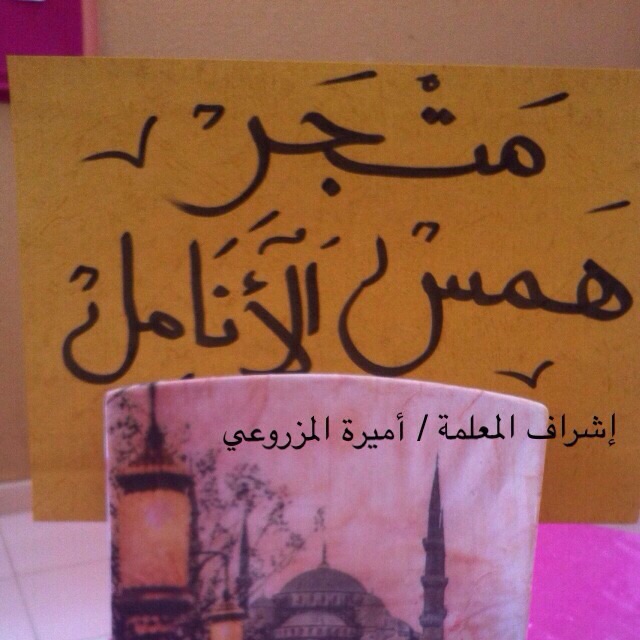 مَتْجَرْ
هَمسْ الأَنَامِلْ
إشراف المعلمة / أميرة المزروعي